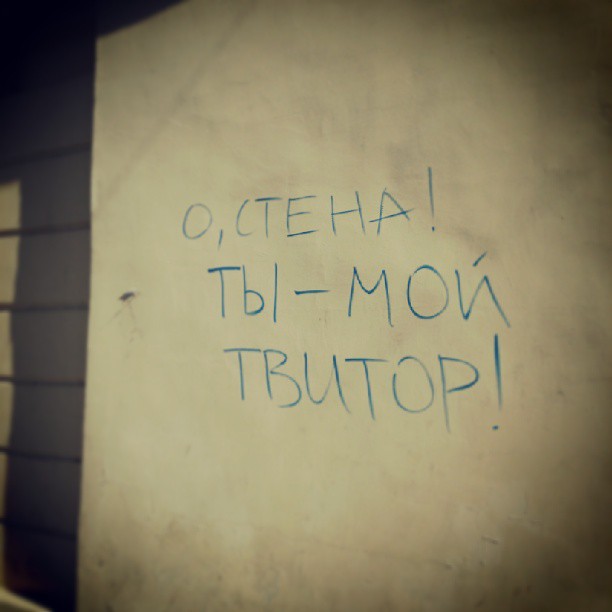 О, СТЕНА!
ТЫ - МОЙ
ТВИТОР!